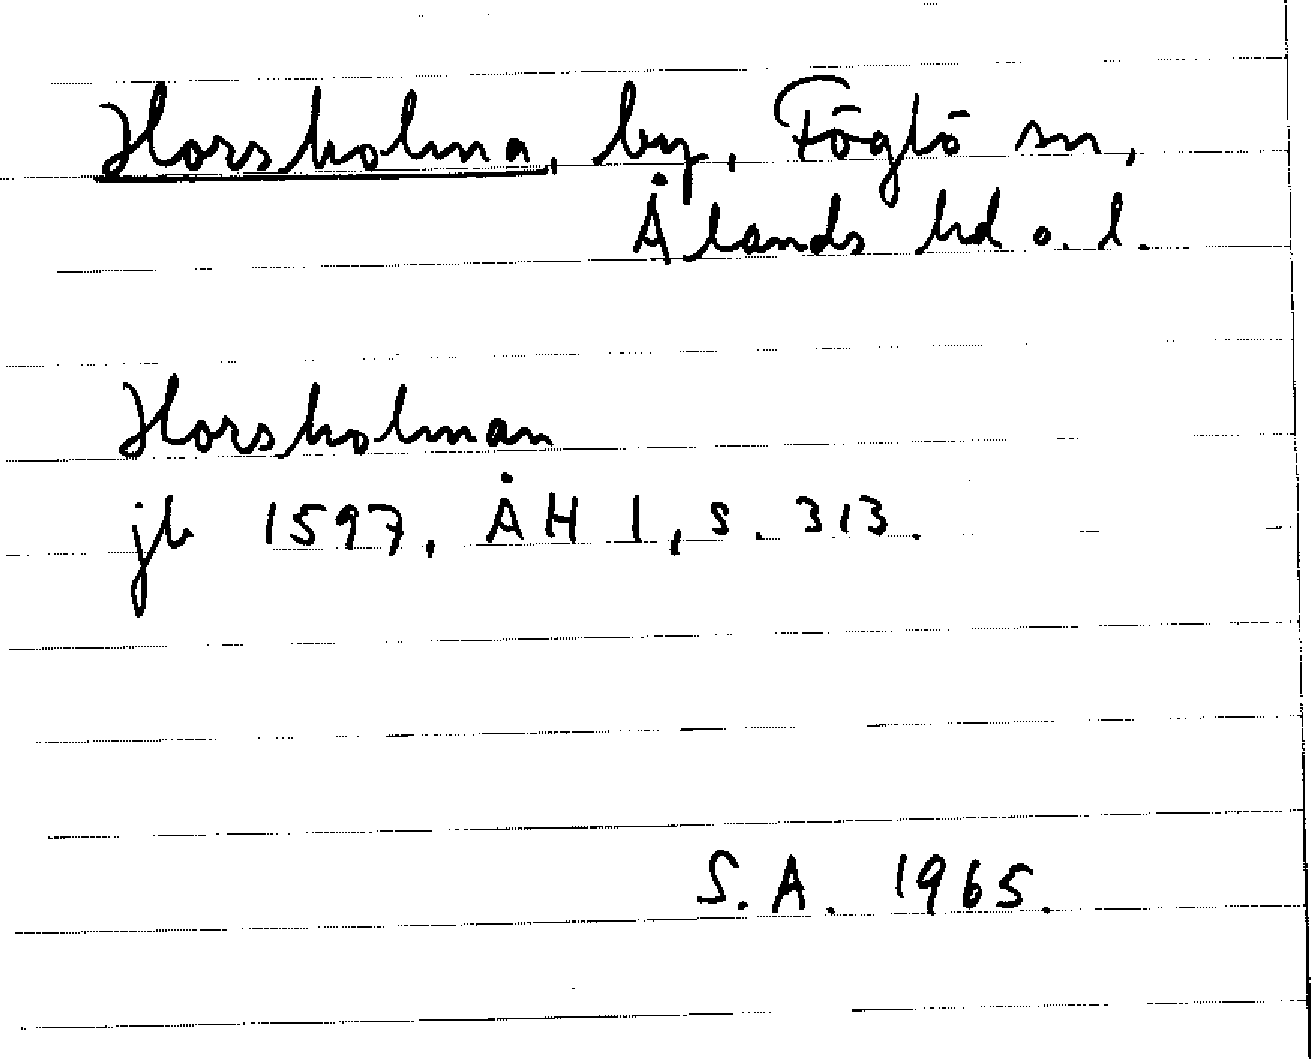 Horsholma, by, Föglö sn,
Ålands hd o. l.
Horsholman
jb 1597, ÅH 1, s. 313.
S.A. 1965.